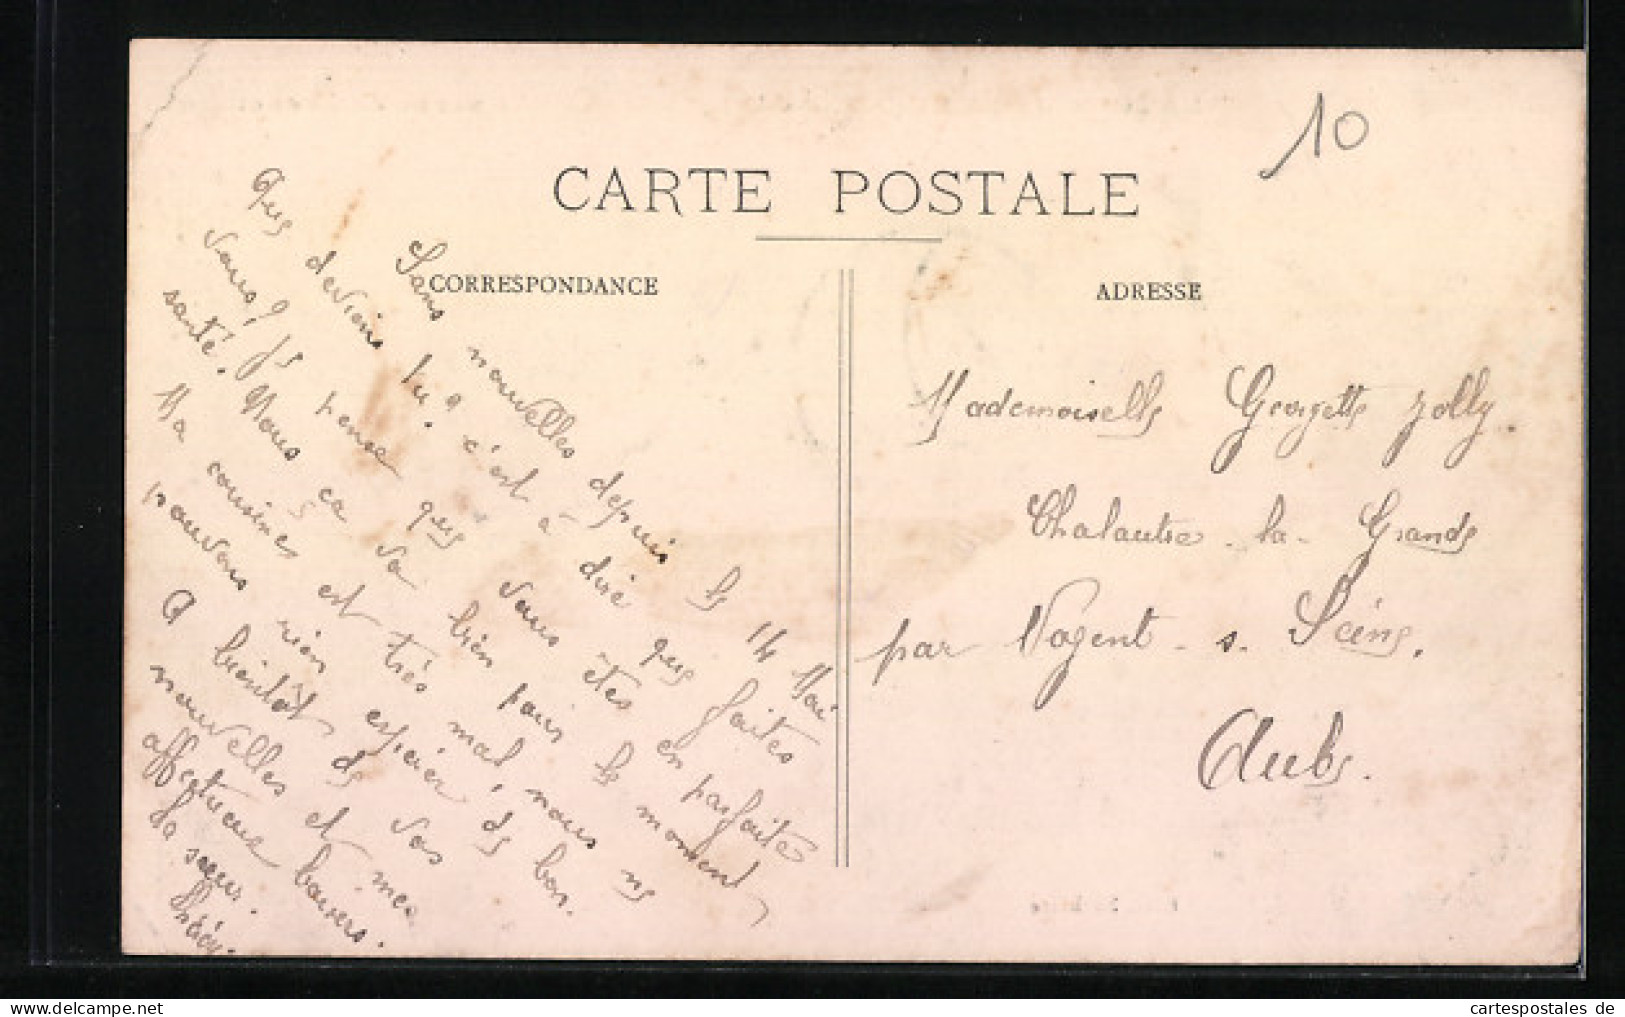 10
CARTE POSTALE
CORRESPONDANCE
ADRESSE
Sans nouvelles depuis le 14 Mai
Que deviens tu? c'est à dire que faites
vous? Je pense que vous êtes en parfaite
santé. Nous ça va bien pour le moment,
Ma cousine est très mal, nous ne
pouvons rien espérer de bon.
A bientôt de vos
nouvelles et mes
affectueux baisers.
Ta sœur.
Mademoiselle Georgette Jolly
Chalautre-la-Grande
par Nogent-s-Seine.
Aube.
cartespostales de